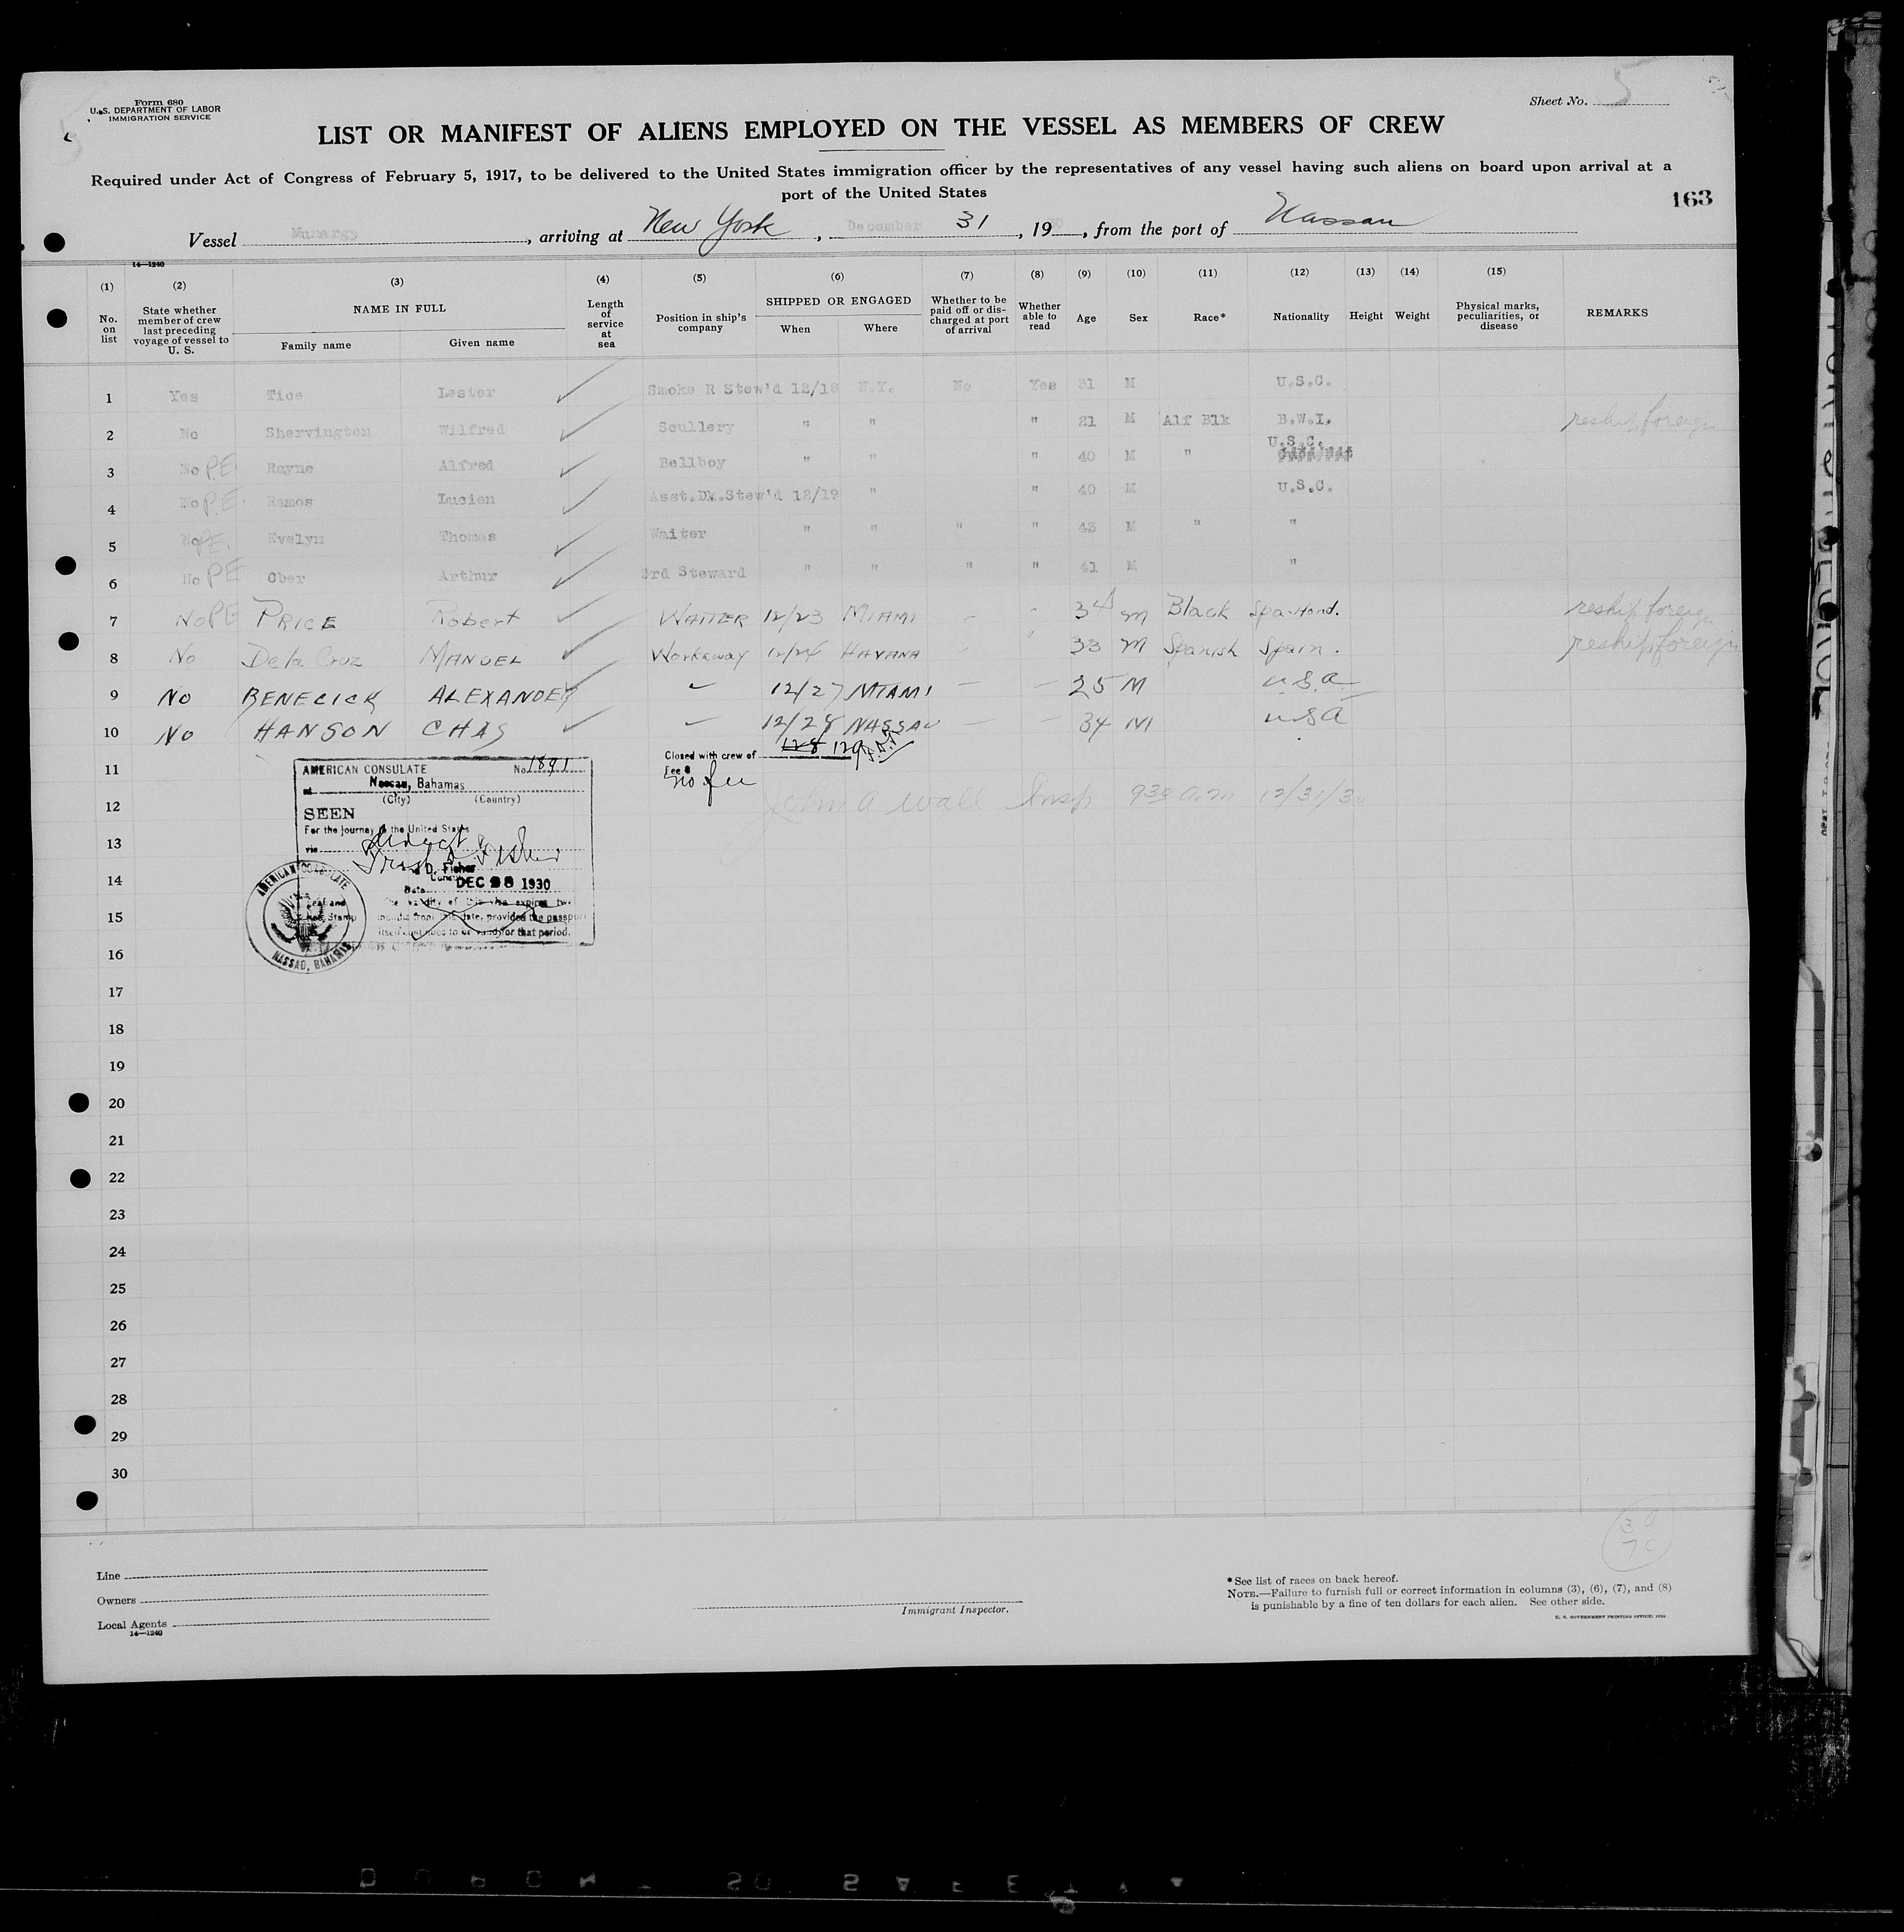 Form 680
U.S. DEPARTMENT OF LABOR
IMMIGRATION SERVICE
Sheet No. 5
LIST OR MANIFEST OF ALIENS EMPLOYED ON THE VESSEL AS MEMBERS OF CREW
Required under Act of Congress of February 5, 1917, to be delivered to the United States immigration officer by the representatives of any vessel having such aliens on board upon arrival at a
port of the United States
163
Vessel Munargo, arriving at New York, December 31, 1930, from the port of Nassau
14—1240
(1) (2) (3) (4) (5) (6) (7) (8) (9) (10) (11) (12) (13) (14) (15)
No. on list State whether member of crew last preceding voyage of vessel to U. S. NAME IN FULL Family name Given name Length of service at sea Position in ship's company SHIPPED OR ENGAGED When Where Whether to be paid off or discharged at port of arrival Whether able to read Age Sex Race* Nationality Height Weight Physical marks, peculiarities, or disease REMARKS
1 Yes Tice Lester Smoke R Stew'd 12/18 N.Y. No Yes 31 M U.S.C.
2 No Shervington Wilfred Scullery " " " 21 M Alf Blk B.W.I. reship foreign
3 No PE Rayne Alfred Bellboy " " " 40 M " U.S.C.
4 No P.E. Ramos Lucien Asst.Dk.Stew'd 12/19 " " 40 M U.S.C.
5 No PE. Evelyn Thomas Waiter " " " " 43 M " "
6 No PE Ober Arthur 3rd Steward " " " " 41 M "
7 No PE PRICE Robert WAITER 12/23 MIAMI 34 M Black Spa-Hond. reship foreign
8 No De la Cruz MANUEL Workaway 12/24 HAVANA 33 M Spanish Spain. reship foreign
9 No BENECICK ALEXANDER 12/27 MIAMI 25 M U.S.A
10 No HANSON CHAS 12/28 NASSAU 34 M U.S.A
Closed with crew of 128 129
Fee $
no fee
11
12 John A Wall Insp 9 30 a.m 12/31/30
AMERICAN CONSULATE No. 1891
at Nassau, Bahamas
(City) (Country)
SEEN
For the journey to the United States
via direct
D. Fisher
Date DEC 28 1930
The validity of this visa expires two
months from this date, provided the passport
itself continues to be valid for that period.
Seal and
Stamp
AMERICAN CONSULATE
NASSAU, BAHAMAS
13
14
15
16
17
18
19
20
21
22
23
24
25
26
27
28
29
30
Line
Owners
Local Agents
14—1240
Immigrant Inspector.
* See list of races on back hereof.
NOTE.—Failure to furnish full or correct information in columns (3), (6), (7), and (8)
is punishable by a fine of ten dollars for each alien. See other side.